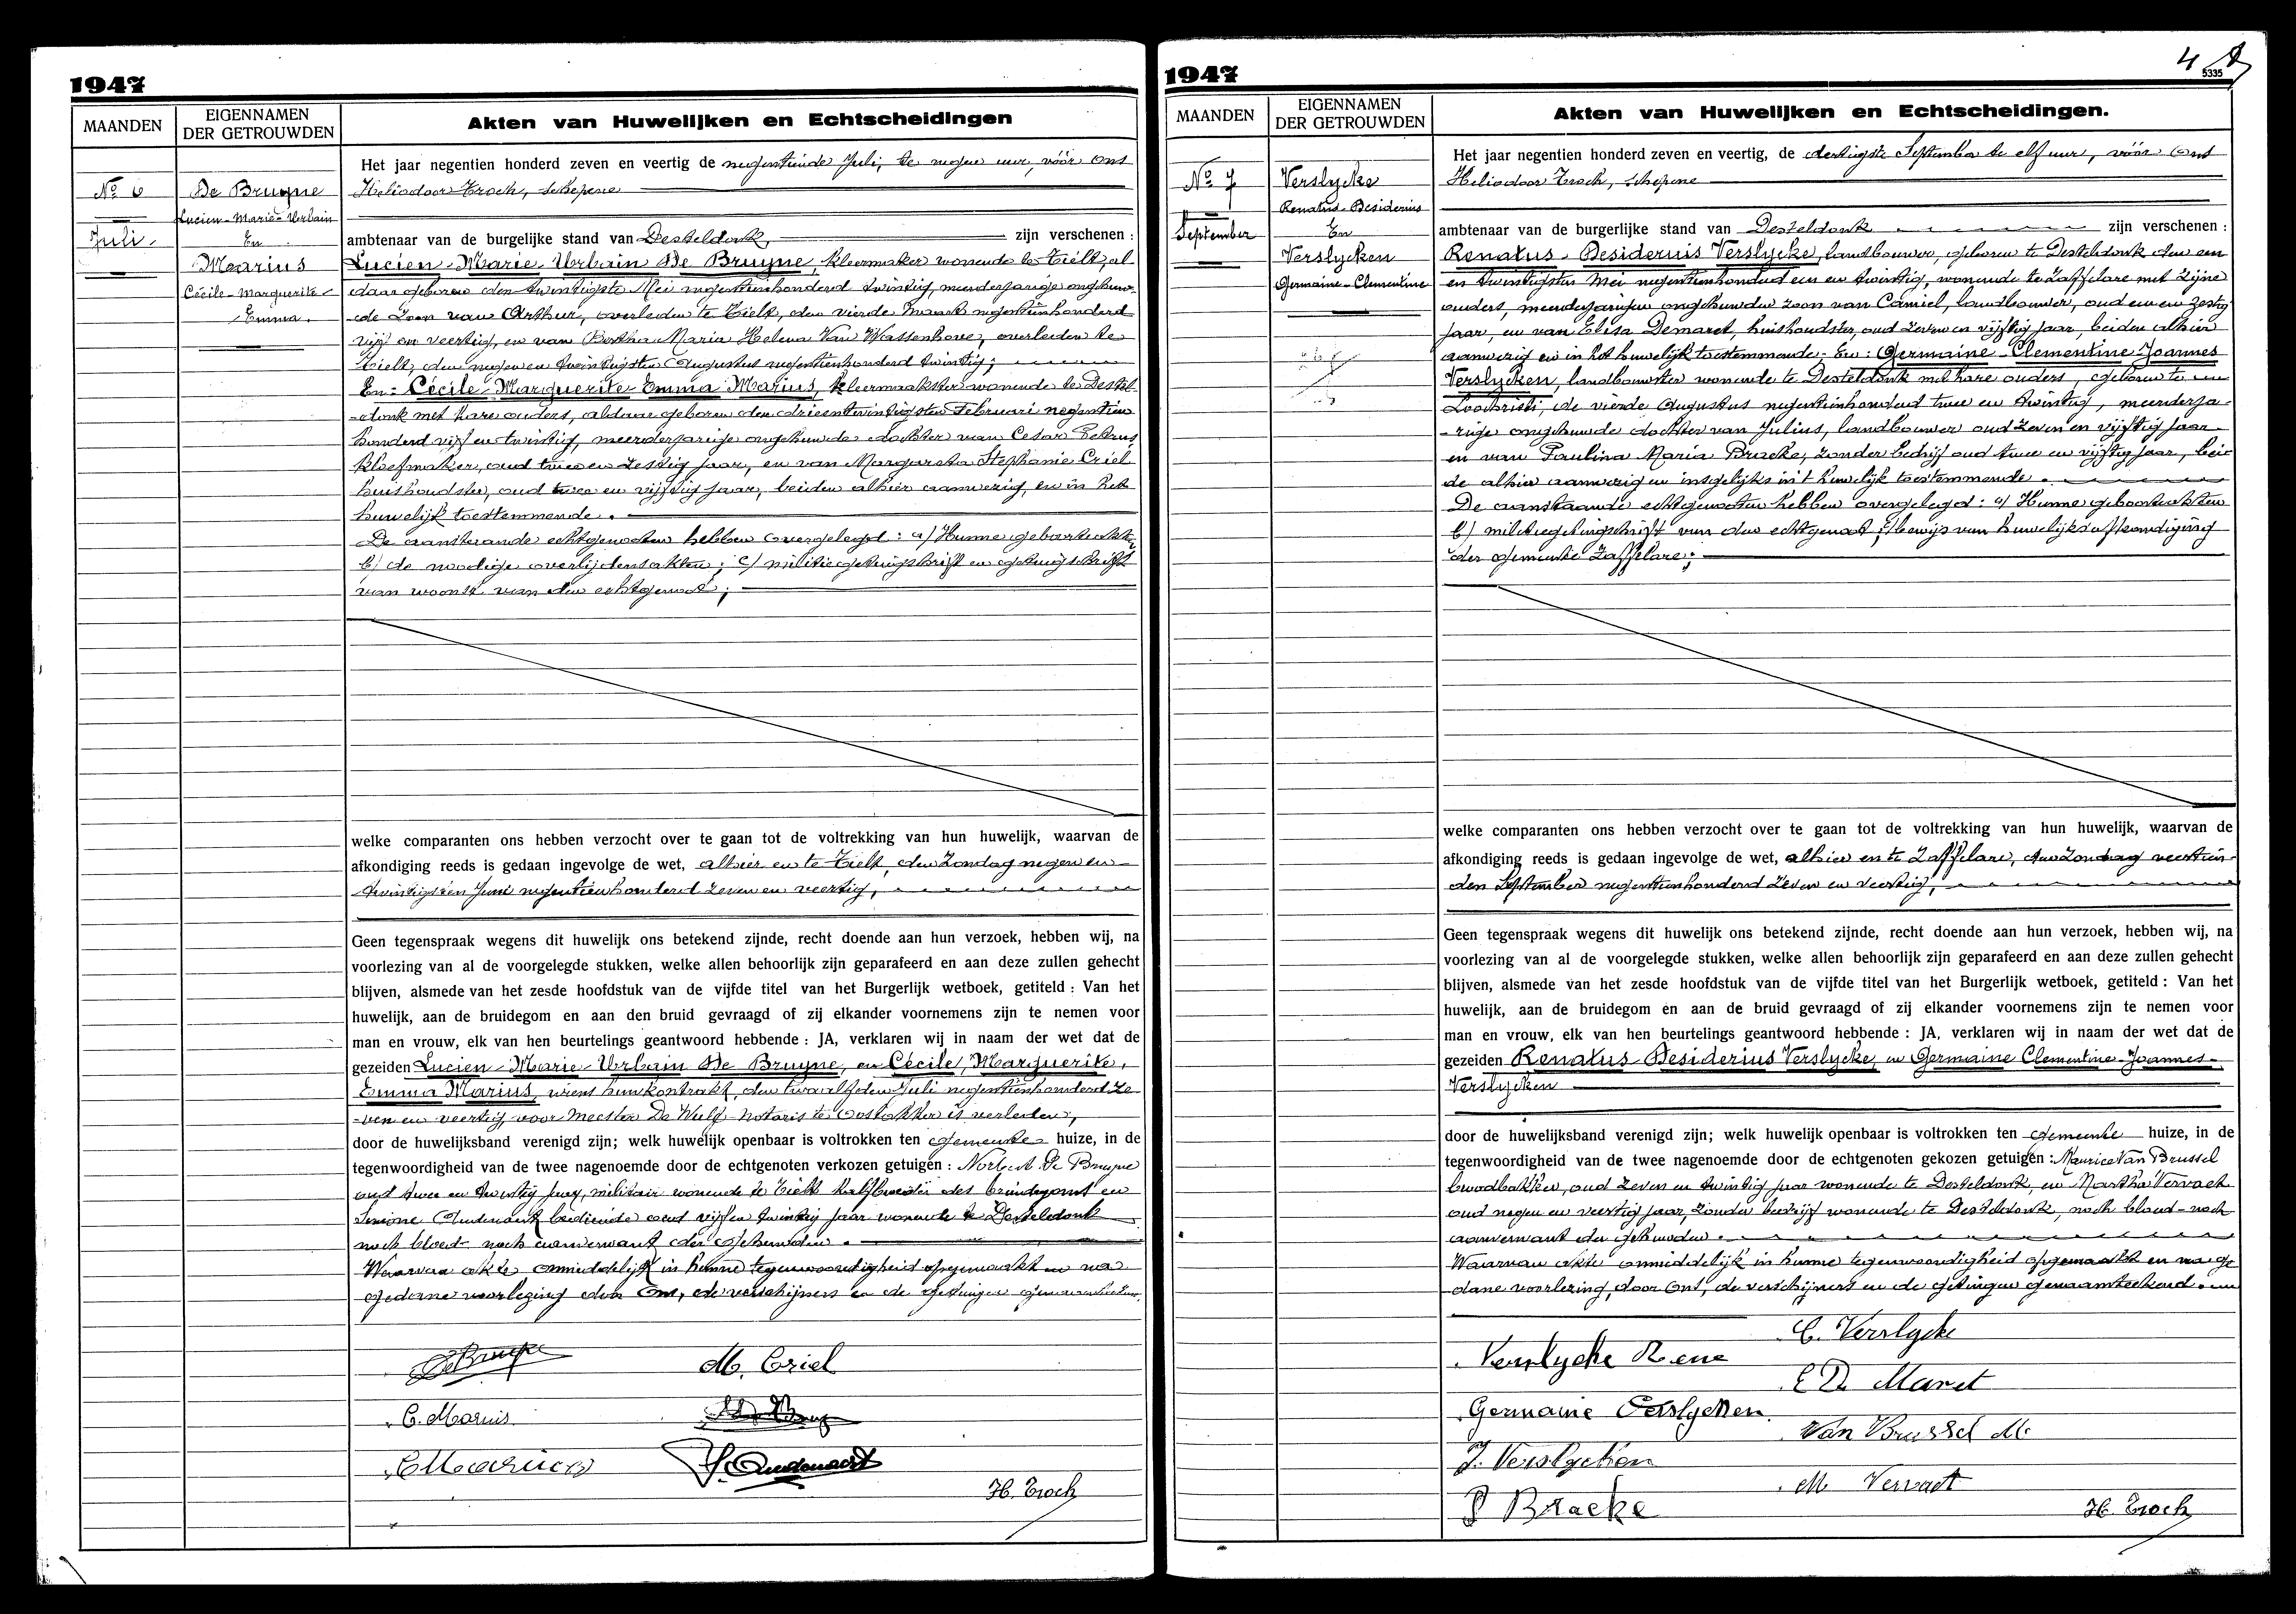 1947
MAANDEN
EIGENNAMEN
DER GETROUWDEN
Akten van Huwelijken en Echtscheidingen
Nº 6
Juli.
De Bruyne
Lucien-Marie-Urbain
En
Marius
Cécile-Marguerite-
Emma.
Het jaar negentien honderd zeven en veertig de negentiende Juli, te negen uur, vóór ons
Heliodoor Troch, schepene
ambtenaar van de burgelijke stand van Desteldonk, zijn verschenen :
Lucien-Marie-Urbain De Bruyne, kleermaker wonende te Tielt, al
daar geboren den twintigste Mei negentienhonderd twintig, meerderjarige ongehuw-
de zoon van Arthur, overleden te Tielt, den vierde Maart negentienhonderd
vijf en veertig, en van Bertha Maria Helena Van Wassenhove, overleden te
Tielt, den negen en twintigsten Augustus negentienhonderd twintig;
En - Cécile-Marguerite-Emma Marius, kleermaakster wonende te Destel-
-donk met hare ouders, aldaar geboren den drieentwintigsten Februari negentien
honderd vijf en twintig, meerderjarige ongehuwde dochter van Cesar Petrus
kloefmaker, oud twee en zestig jaar, en van Margareta Stephanie Criel
huishoudster, oud twee en vijftig jaar, beiden alhier aanwezig, en in het
huwelijk toestemmende.
De aanstaande echtgenoten hebben overgelegd : a/ Hunne geboorteakten
b/ de noodige overlijdensakten; c/ militiegetuigschrift en getuigschrift
van woonst van den echtgenoot;
welke comparanten ons hebben verzocht over te gaan tot de voltrekking van hun huwelijk, waarvan de
afkondiging reeds is gedaan ingevolge de wet, alhier en te Tielt, den Zondag negen en
twintigsten Juni negentienhonderd zeven en veertig,
Geen tegenspraak wegens dit huwelijk ons betekend zijnde, recht doende aan hun verzoek, hebben wij, na
voorlezing van al de voorgelegde stukken, welke allen behoorlijk zijn geparafeerd en aan deze zullen gehecht
blijven, alsmede van het zesde hoofdstuk van de vijfde titel van het Burgerlijk wetboek, getiteld : Van het
huwelijk, aan de bruidegom en aan den bruid gevraagd of zij elkander voornemens zijn te nemen voor
man en vrouw, elk van hen beurtelings geantwoord hebbende : JA, verklaren wij in naam der wet dat de
gezeiden Lucien-Marie-Urbain De Bruyne, en Cécile, Marguerite,
Emma Marius, wiens huwkontrakt, den twaalfden Juli negentienhonderd ze-
-ven en veertig voor meester De Wulf notaris te Oostakker is verleden,
door de huwelijksband verenigd zijn; welk huwelijk openbaar is voltrokken ten gemeente huize, in de
tegenwoordigheid van de twee nagenoemde door de echtgenoten verkozen getuigen : Norbert De Bruyne
oud twee en twintig jaar, militair wonende te Tielt halfbroeder des bruidegoms en
Simone Oudenaert bediende oud vijf en twintig jaar wonende te Desteldonk
noch bloed- noch aanverwant der gehuwden.
Waarvan akte onmiddelijk in hunne tegenwoordigheid opgemaakt en na
gedane voorlezing door Ons, de verschijners en de getuigen
De Bruyne
M. Criel
C. Marius
C Marius
S. Oudenaert
H. Troch
1947
4
5335
MAANDEN
EIGENNAMEN
DER GETROUWDEN
Akten van Huwelijken en Echtscheidingen.
Nº 7
September
Verslycke
Renatus-Desiderius
En
Verslycken
Germaine-Clementine
Het jaar negentien honderd zeven en veertig, de dertigste September te elf uur, vóór Ons
Heliodoor Troch, schepene
ambtenaar van de burgerlijke stand van Desteldonk zijn verschenen :
Renatus-Desiderius Verslycke, landbouwer, geboren te Desteldonk den een
en twintigsten Mei negentienhonderd een en twintig, wonende te Zaffelare met zijne
ouders, meerderjarigen ongehuwden zoon van Camiel, landbouwer, oud een en zestig
jaar, en van Elisa Demaret, huishoudster, oud zeven en vijftig jaar, beiden alhier
aanwezig en in het huwelijk toestemmende - En : Germaine-Clementine-Joannes
Verslycken, landbouwster wonende te Desteldonk met hare ouders, geboren te
Loochristi, de vierde Augustus negentienhonderd twee en twintig, meerderja-
-rige ongehuwde dochter van Julius, landbouwer oud zeven en vijftig jaar
en van Paulina Maria Bracke, zonder bedrijf oud twee en vijftig jaar, bei-
de alhier aanwezig en insgelijks in 't huwelijk toestemmende.
De aanstaande echtgenooten hebben overgelegd : a/ Hunne geboorteakten
b/ militiegetuigschrift van den echtgenoot; c/ bewijs van huwelijksafkondiging
der gemeente Zaffelare;
welke comparanten ons hebben verzocht over te gaan tot de voltrekking van hun huwelijk, waarvan de
afkondiging reeds is gedaan ingevolge de wet, alhier en te Zaffelare, den Zondag veertien-
den September negentienhonderd zeven en veertig,
Geen tegenspraak wegens dit huwelijk ons betekend zijnde, recht doende aan hun verzoek, hebben wij, na
voorlezing van al de voorgelegde stukken, welke allen behoorlijk zijn geparafeerd en aan deze zullen gehecht
blijven, alsmede van het zesde hoofdstuk van de vijfde titel van het Burgerlijk wetboek, getiteld : Van het
huwelijk, aan de bruidegom en aan de bruid gevraagd of zij elkander voornemens zijn te nemen voor
man en vrouw, elk van hen beurtelings geantwoord hebbende : JA, verklaren wij in naam der wet dat de
gezeiden Renatus-Desiderius Verslycke, en Germaine Clementine-Joannes-
Verslycken
door de huwelijksband verenigd zijn; welk huwelijk openbaar is voltrokken ten gemeente huize, in de
tegenwoordigheid van de twee nagenoemde door de echtgenoten gekozen getuigen : Maurice Van Brussel
broodbakker, oud zeven en twintig jaar wonende te Desteldonk, en Martha Vervaet
oud negen en veertig jaar, zonder bedrijf wonende te Desteldonk, noch bloed- noch
aanverwant der gehuwden.
Waarvan akte onmiddelijk in hunne tegenwoordigheid opgemaakt en na ge-
-dane voorlezing, door Ons, de verschijners en de getuigen genaamteekend.
C. Verslycke
Verslycke Rene
E De Maret
Germaine Verslycken
Van Brussel M.
J. Verslycken
M Vervaet
P Bracke
H. Troch